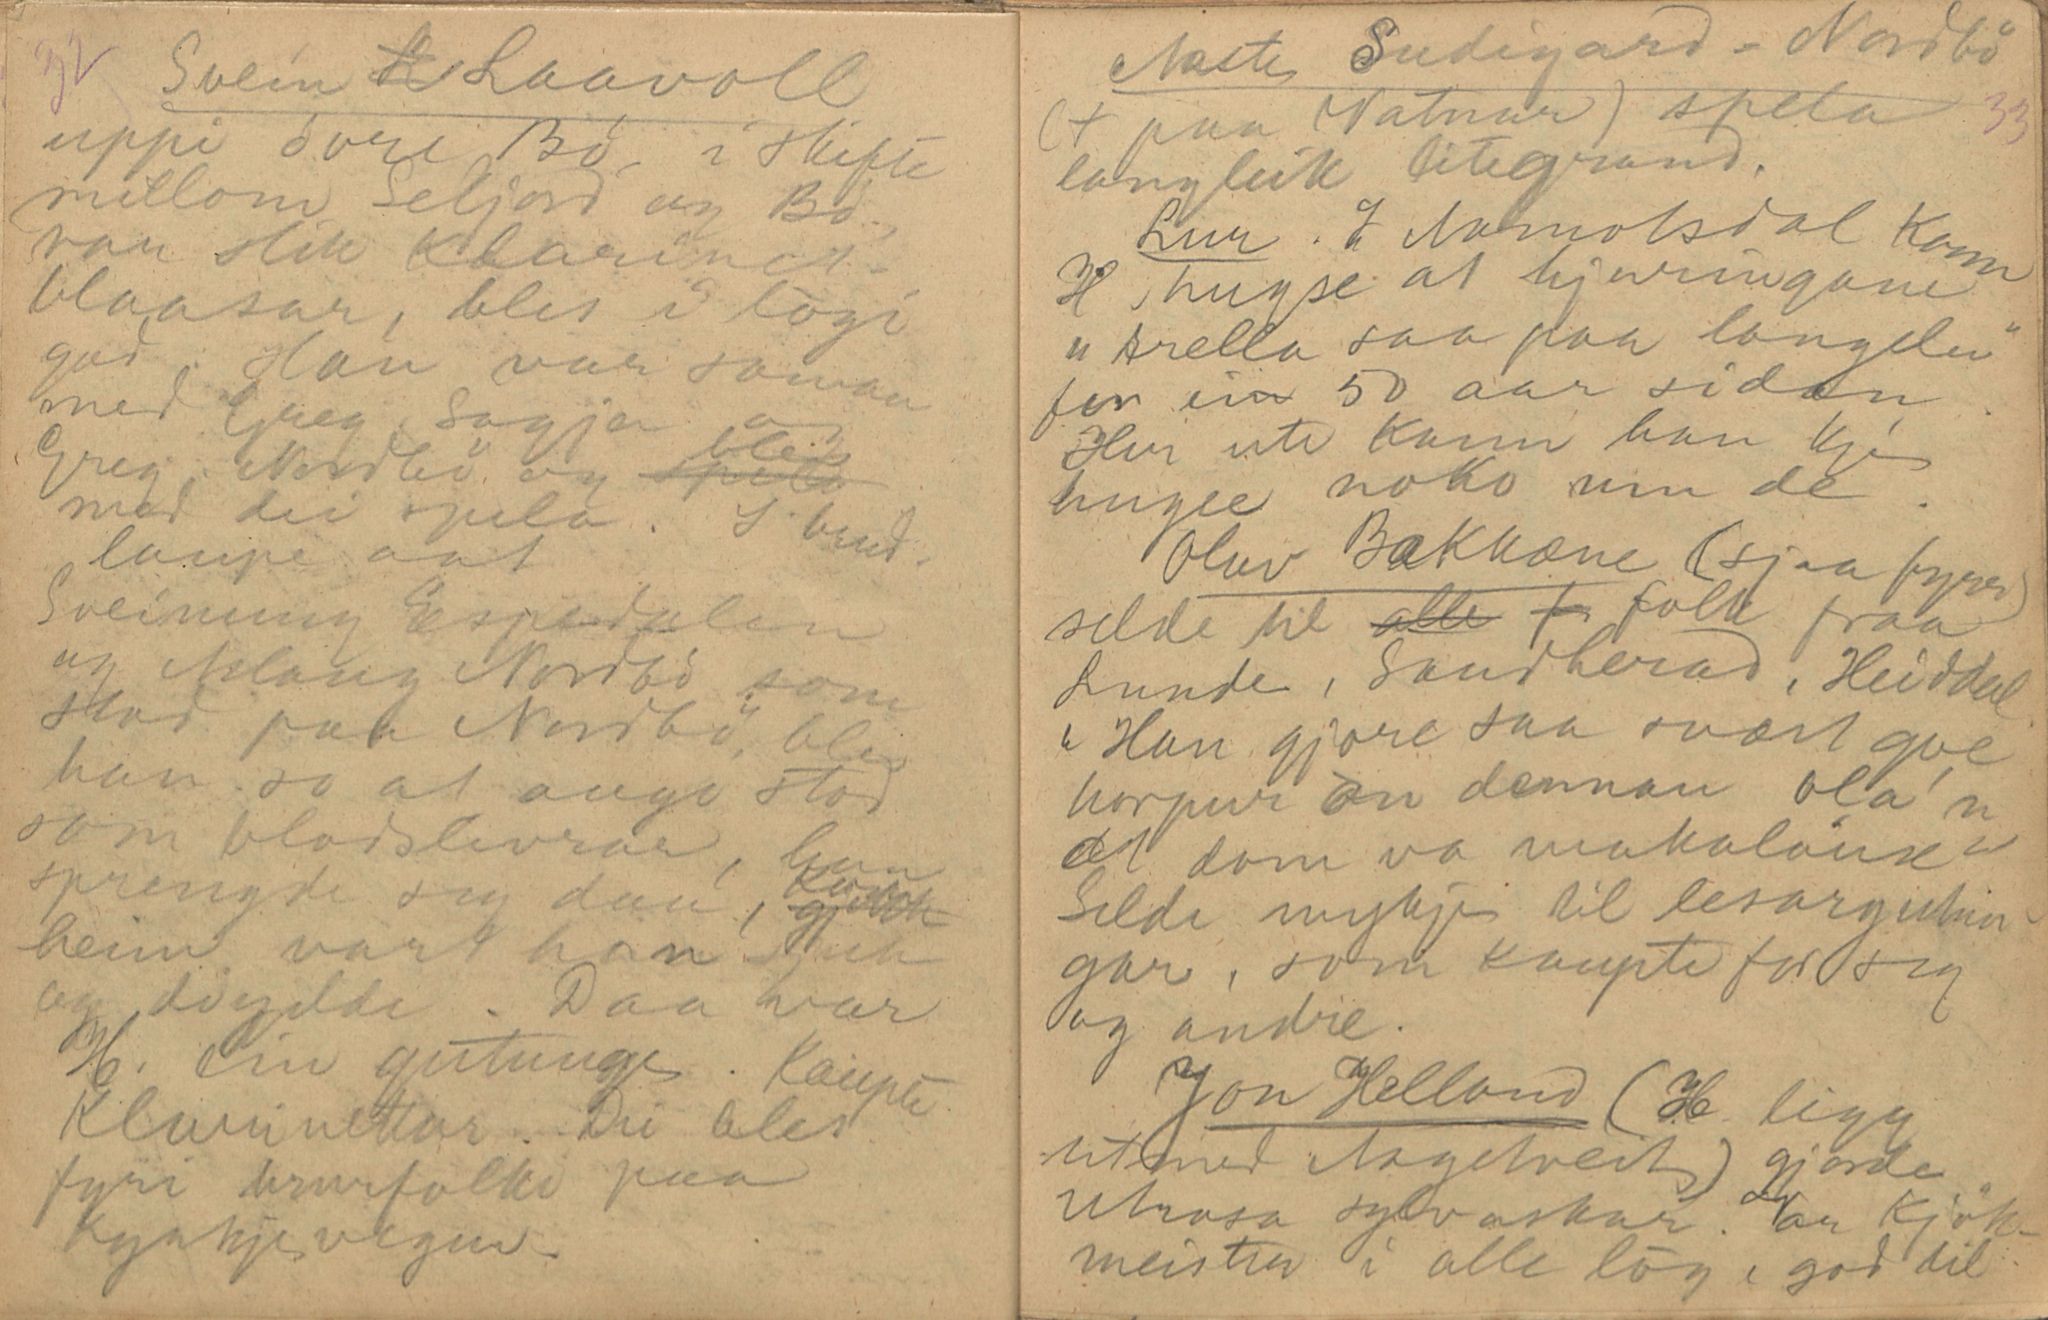 32
Svein Laavoll
uppi övre Bö, i skifte
millom Seljord og Bö,
var slik klarinet-
blaasar, bles i lögi
god. Han var saman
med Greg. Sagja og
Greg. Nordbö og bles
med dei spela. I brud-
laupe aat
Sveinung Espedalen
og Aslaug Nordbö som
stod paa Nordbö, bles
han so at augo stod
som blodslevrar, han
sprengde seg daa,
heim vart han sjuk
og döydde. Daa var
H. ein gutunge. Kaupte
Klarinettar. Dei bles
fyri brurfolki paa
kyrkjevegen.
33
Aaste Sudigard-Nordbö
(+ paa Vatnar) spela
langleik litegrand.
Lur. I Aamotsdal kann
H hugse at hjuringane
"trella saa paa langelur"
for ein 50 aar sidan.
Her ute kann han kje
hugse noko um de.
Olav Bakkane (sjaa fyrr)
selde til alle f folk fraa
Lunde, Sandherad, Heiddal.
"Han gjore saa svært goe
horpur än dennan Ola'n
at dom va makalöuse"
Selde mykje til lesargutun-
gar, som kaupte for seg
og andre.
Jon Helland (H ligg
utmed Aagetveit) gjorde
utrosa sylvaskar. Var Kjök-
meister i alle lög, god til